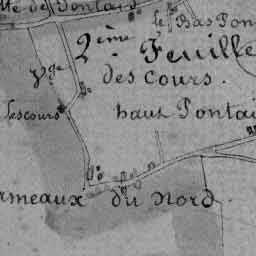 tte de Pontaid
le Bas Pon
2ème Feuille
des Cours.
Vge
Lescours
haut Pontai
ormeaux du Nord